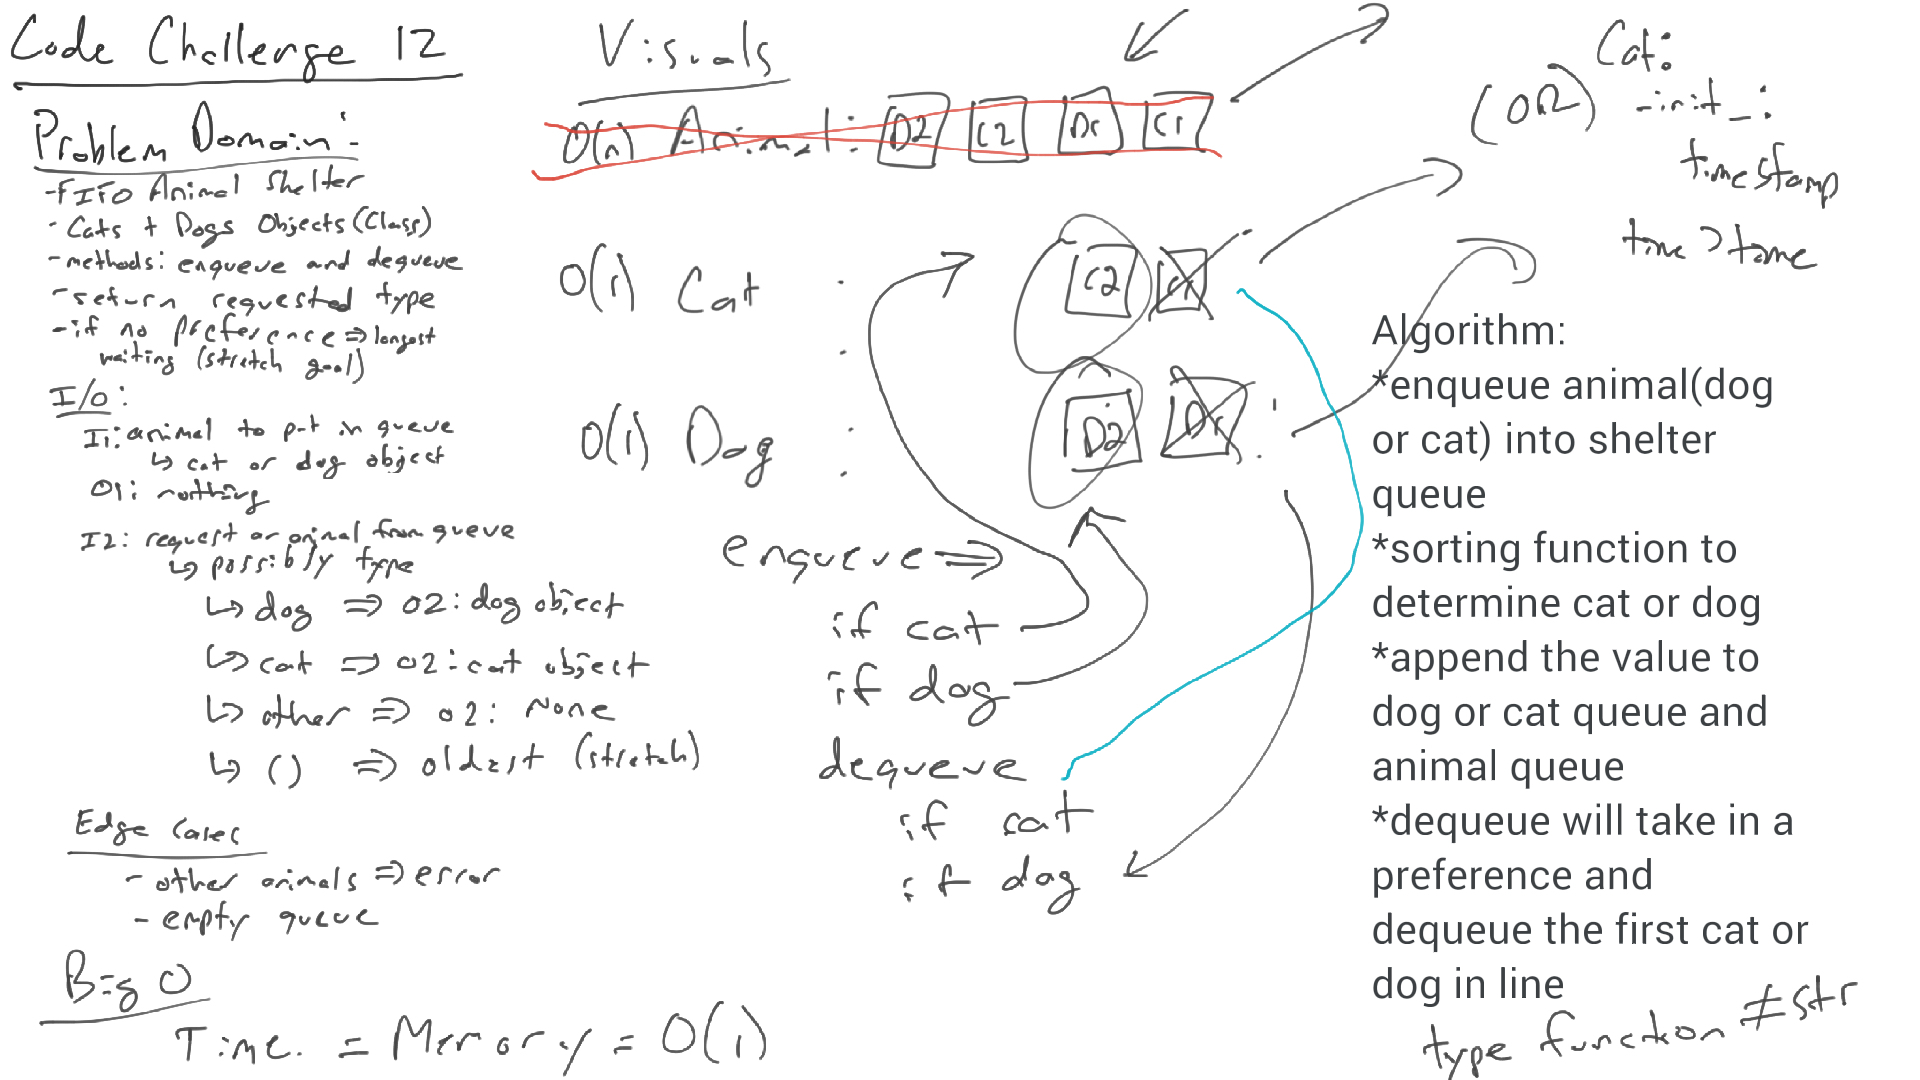 Code Challenge 12
Problem Domain:
-FIFO Animal Shelter
- Cats + Dogs Objects (Class)
- methods: enqueue and dequeue
- return requested type
- if no preference => longest
waiting (stretch goal)
I/O:
I1: animal to put in queue
↳ cat or dog object
O1: nothing
I2: request an animal from queue
↳ possibly type
↳ dog => O2: dog object
↳ cat => O2: cat object
↳ other => O2: None
↳ () => oldest (stretch)
Edge Cases
- other animals => error
- empty queue
Big O
Time = Memory = O(1)
Visuals
O(n) Animal: D2 C2 D1 C1
O(1) Cat : C2 C1
O(1) Dog : D2 D1
enqueue =>
if cat
if dog
dequeue
if cat
if dog
(OR) Cat:
-init_:
timestamp
time > time
Algorithm:
*enqueue animal(dog
or cat) into shelter
queue
*sorting function to
determine cat or dog
*append the value to
dog or cat queue and
animal queue
*dequeue will take in a
preference and
dequeue the first cat or
dog in line
type function ≠ str